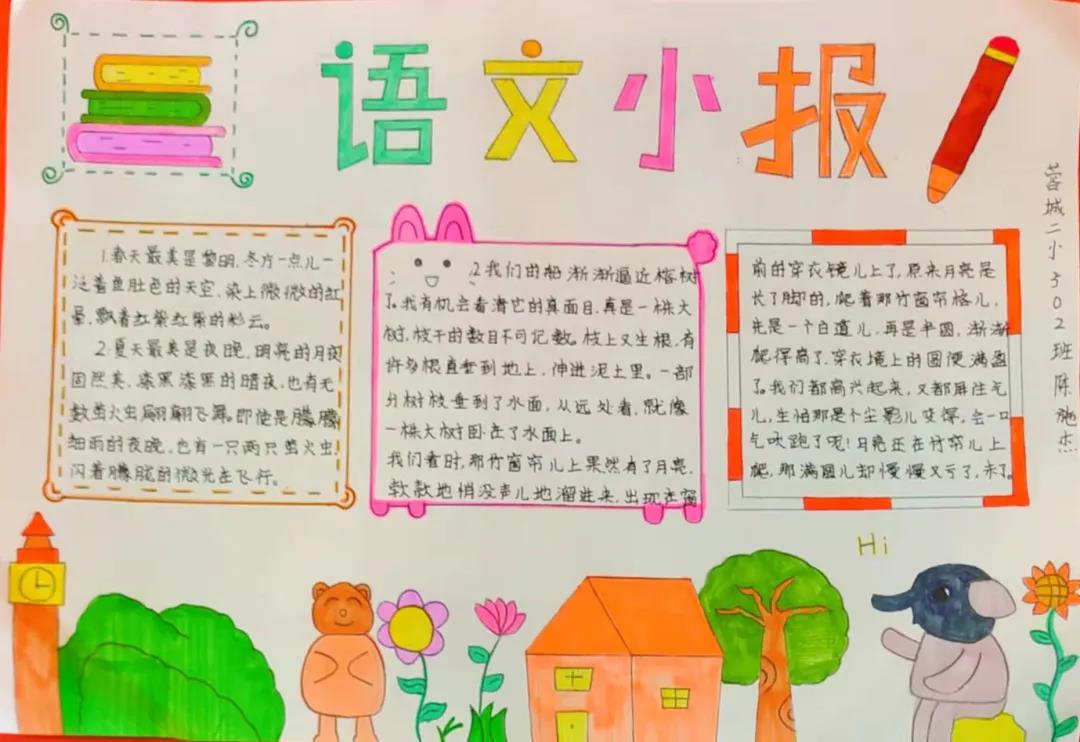 语文小报
蓉城二小302班陈施杰
1.春天最美是黎明。东方一点儿一
泛着鱼肚色的天空,染上微微的红
晕,飘着红紫红紫的彩云。
2.夏天最美是夜晚。明亮的月夜
固然美,漆黑漆黑的暗夜,也有无
数萤火虫翩翩飞舞。即使是朦朦
细雨的夜晚,也有一只两只萤火虫,
闪着朦胧的微光在飞行。
2我们的船渐渐逼近榕树
了。我有机会看清它的真面目,真是一株大
树,枝干的数目不可记数。枝上又生根,有
许多根直垂到地上,伸进泥土里。一部
分树枝垂到了水面,从远处看,就像
一株大树卧在了水面上。
我们看时,那竹窗帘儿上果然有了月亮,
款款地悄没声儿地溜进来,出现在窗
前的穿衣镜儿上了,原来月亮是
长了脚的,爬着那竹窗帘格儿,
先是一个白道儿,再是半圆,渐渐
爬得高了,穿衣境上的圆便满盈
了。我们都高兴起来,又都屏住气
儿,生怕那是个尘影儿变得,会一口
气吹跑了呢!月亮还在竹帘儿上
爬,那满圆儿却慢慢又亏了,末了。
Hi